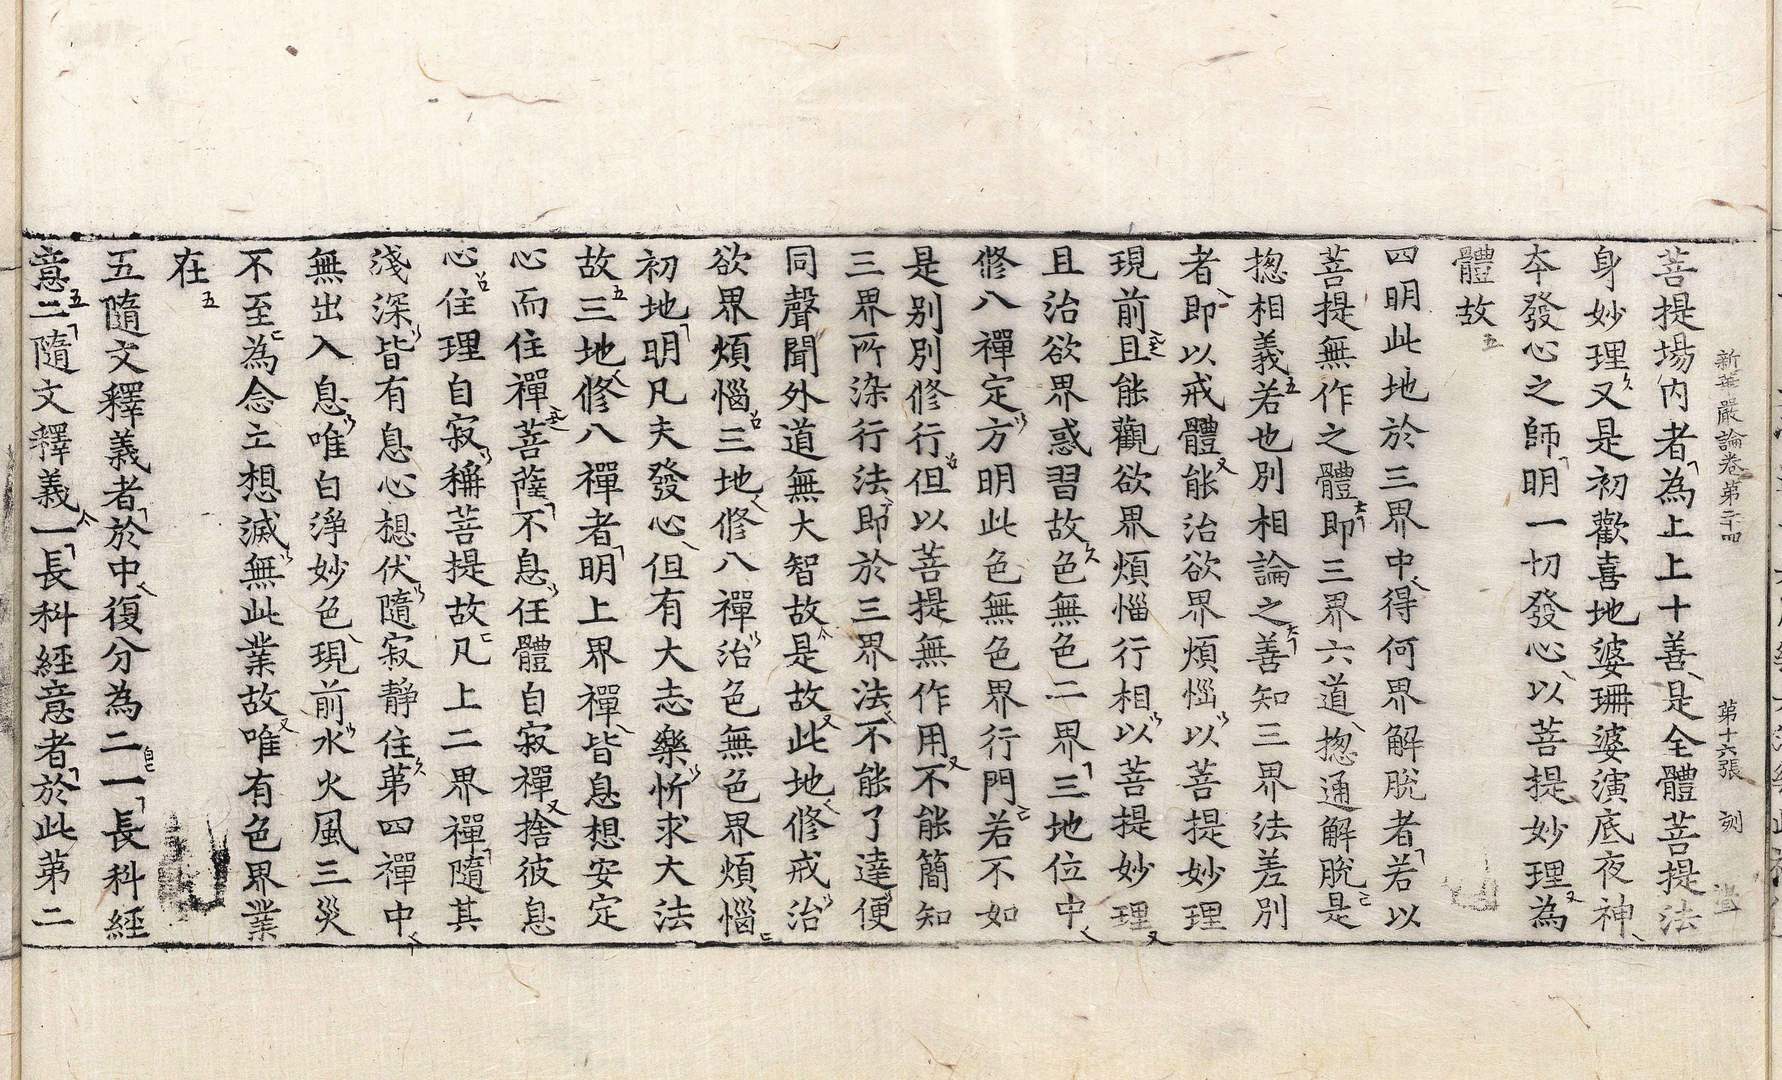 新華嚴論卷第二十四 第十六張
菩提場内者為上上十善是全體菩提法
身妙理又是初歡喜地婆珊婆演底夜神
本發心之師明一切發心以菩提妙理為
體故
四明此地於三界中得何界解脱者若以
菩提無作之體即三界六道揔通解脱是
揔相義若也別相論之善知三界法差別
者即以戒體能治欲界煩惱以菩提妙理
現前且能觀欲界煩惱行相以菩提妙理
且治欲界惑習故色無色二界三地位中
修八禪定方明此色無色界行門若不如
是别別修行但以菩提無作用不能簡知
三界所染行法即於三界法不能了達便
同聲聞外道無大智故是故此地修戒治
欲界煩惱三地修八禪治色無色界煩惱
初地明凡夫發心但有大志樂忻求大法
故三地修八禪者明上界禪皆息想安定
心而住禪菩薩不息任體自寂禪捨彼息
心住理自寂稱菩提故凡上二界禪隨其
淺深皆有息心想伏隨寂靜住第四禪中
無出入息唯白淨妙色現前水火風三災
不至為念立想滅無此業故唯有色界業
在
五隨文釋義者於中復分為二一長科經
意二隨文釋義一長科經意者於此第二